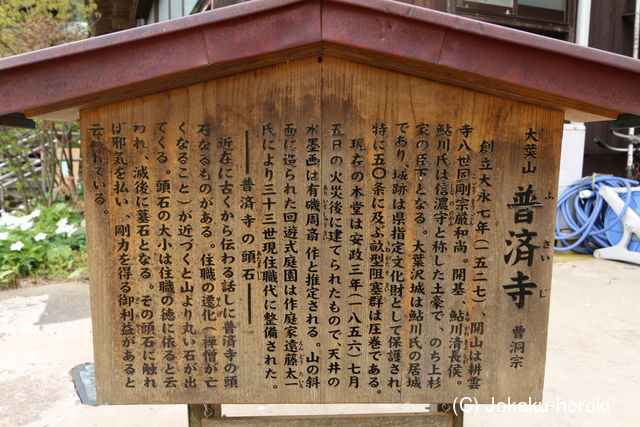 大葉山 普済寺 曹洞宗
ふ さい じ
創立大永七年(一五二七)、開山は耕雲
寺八世固剛宗厳和尚。開基、鮎川清長侯。
鮎川氏は信濃守と称した土豪で、のち上杉
家の臣下となる。大葉沢城は鮎川氏の居城
であり、城跡は県指定文化財として保護され、
特に五〇条に及ぶ畝型阻塞群は圧巻である。
現在の本堂は安政三年(一八五六)七月
五日の火災後に建てられたもので、天井の
水墨画は有磯周斎 作と推定される。山の斜
面に造られた回遊式庭園は作庭家遠藤太一
えんどう たいち
氏により三十三世現住職代に整備された。
普済寺の頭石
近在に古くから伝わる話しに普済寺の頭
石なるものがある。住職の遷化(禅僧が亡
せんげ
くなること)が近づくと山より丸い石が出
てくる。頭石の大小は住職の徳に依ると云
われ、滅後に墓石となる。その頭石に触れ
ば邪気を払い、剛力を得る御利益があると
云われている。
(C) Jokaku-horoki